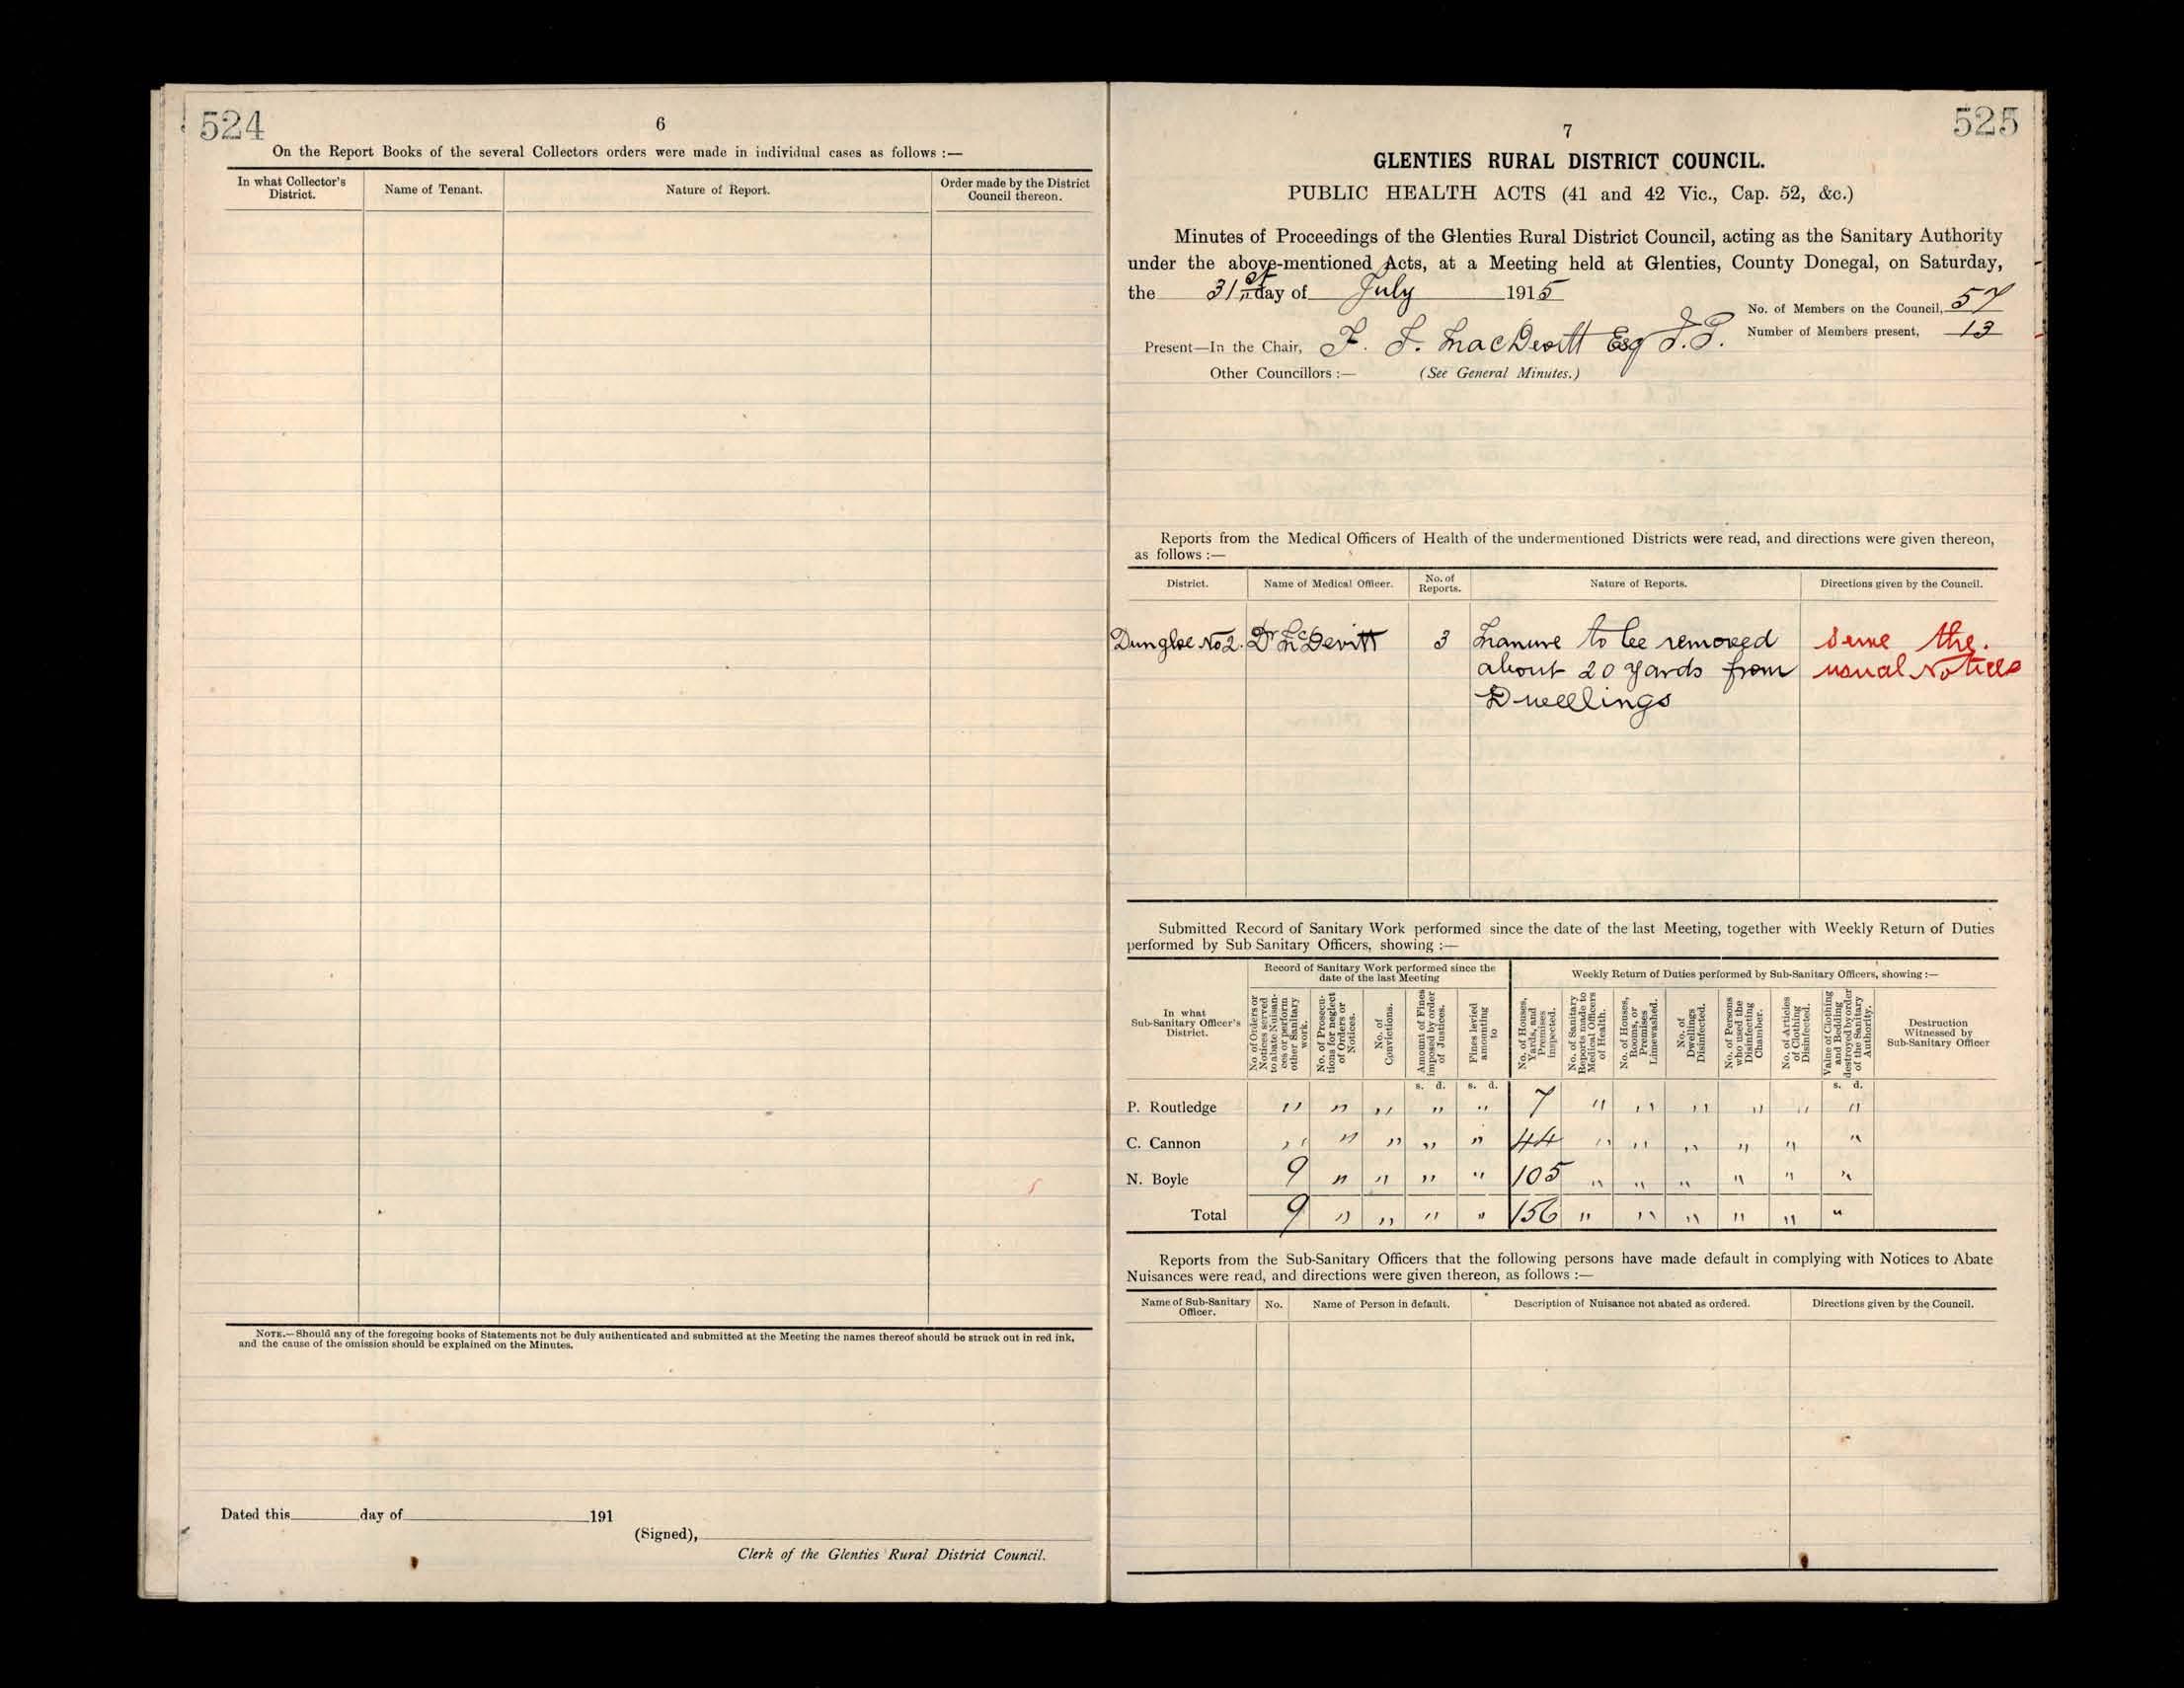 524
6
On the Report Books of the several Collectors orders were made in individual cases as follows :—
In what Collector's District.
Name of Tenant.
Nature of Report.
Order made by the District Council thereon.
NOTE.—Should any of the foregoing books of Statements not be duly authenticated and submitted at the Meeting the names thereof should be struck out in red ink,
and the cause of the omission should be explained on the Minutes.
Dated this day of 191
(Signed),
Clerk of the Glenties Rural District Council.
525
7
GLENTIES RURAL DISTRICT COUNCIL.
PUBLIC HEALTH ACTS (41 and 42 Vic., Cap. 52, &c.)
Minutes of Proceedings of the Glenties Rural District Council, acting as the Sanitary Authority
under the above-mentioned Acts, at a Meeting held at Glenties, County Donegal, on Saturday,
the 31st day of July 1915
No. of Members on the Council, 57
Number of Members present, 13
Present—In the Chair, F. F. MacDevitt Esq J.P.
Other Councillors :— (See General Minutes.)
Reports from the Medical Officers of Health of the undermentioned Districts were read, and directions were given thereon,
as follows :—
District.
Name of Medical Officer.
No. of Reports.
Nature of Reports.
Directions given by the Council.
Dungloe No 2. Dr McDevitt 3 Manure to be removed Serve the
about 20 yards from usual Notices
Dwellings
Submitted Record of Sanitary Work performed since the date of the last Meeting, together with Weekly Return of Duties
performed by Sub Sanitary Officers, showing :—
In what Sub-Sanitary Officer's District.
Record of Sanitary Work performed since the date of the last Meeting
Weekly Return of Duties performed by Sub-Sanitary Officers, showing :—
No. of Orders or Notices served to abate Nuisances or perform other Sanitary work.
No. of Prosecutions for neglect of Orders or Notices.
No. of Convictions.
Amount of Fines imposed by order of Justices.
Fines levied amounting to
No. of Houses, Yards, and Premises inspected.
No. of Sanitary Reports made to Medical Officers of Health.
No. of Houses, Rooms, or Premises Limewashed.
No. of Dwellings Disinfected.
No. of Persons who used the Disinfecting Chamber.
No. of Articles of Clothing Disinfected.
Value of Clothing and Bedding destroyed by order of the Sanitary Authority.
Destruction Witnessed by Sub-Sanitary Officer
s. d. s. d. s. d.
P. Routledge " " " " " 7 " " " " " "
C. Cannon " " " " " 44 " " " " " "
N. Boyle 9 " " " " 105 " " " " " "
Total 9 " " " " 156 " " " " " "
Reports from the Sub-Sanitary Officers that the following persons have made default in complying with Notices to Abate
Nuisances were read, and directions were given thereon, as follows :—
Name of Sub-Sanitary Officer.
No.
Name of Person in default.
Description of Nuisance not abated as ordered.
Directions given by the Council.